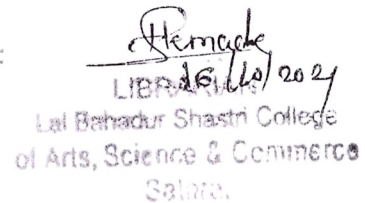 :
16/10/2021
LIBRARIAN
Lal Bahadur Shastri College
of Arts, Science & Commerce
Satara.